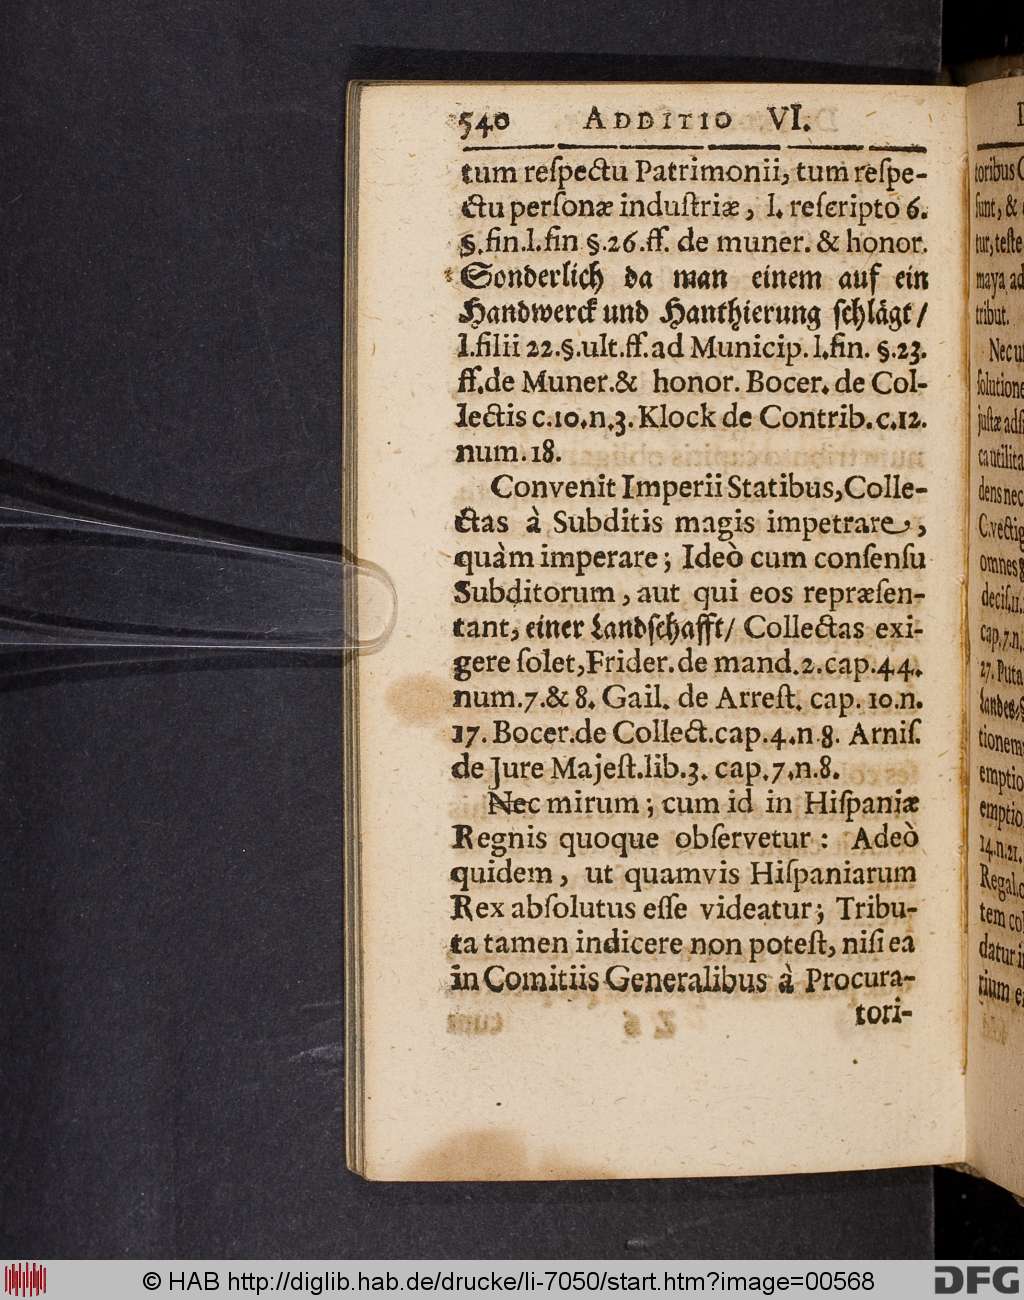 540 ADDITIO VI.
tum reſpectu Patrimonii, tum reſpe-
ctu perſonæ induſtriæ, l. reſcripto 6.
§. fin. l. fin §. 26. ff. de muner. & honor.
Sonderlich da man einem auf ein
Handwerck und Hanthierung ſchlägt /
l. filii 22. §. ult. ff. ad Municip. l. fin. §. 23.
ff. de Muner. & honor. Bocer. de Col-
lectis c. 10. n. 3. Klock de Contrib. c. 12.
num. 18.
Convenit Imperii Statibus, Colle-
ctas à Subditis magis impetrare,
quàm imperare; Ideò cum conſenſu
Subditorum, aut qui eos repræſen-
tant, einer Landſchafft / Collectas exi-
gere ſolet, Frider. de mand. 2. cap. 44.
num. 7. & 8. Gail. de Arreſt. cap. 10. n.
17. Bocer. de Collect. cap. 4. n. 8. Arniſ.
de Jure Majeſt. lib. 3. cap. 7. n. 8.
Nec mirum; cum id in Hiſpaniæ
Regnis quoque obſervetur: Adeò
quidem, ut quamvis Hiſpaniarum
Rex abſolutus eſſe videatur; Tribu-
ta tamen indicere non poteſt, niſi ea
in Comitiis Generalibus à Procura-
tori-
toribus
ſunt, &
tur, teſte
maya, ad
tribut.
Nec
ſolutione
juſtæ
ca utilita
dens nec
C. vectig
omnes
deciſ. 11.
cap. 7. n.
27. Puta
Landes
tionem
emptio
emptio
14. n. 21.
Regal. c
tem
datur
rium
© HAB http://diglib.hab.de/drucke/li-7050/start.htm?image=00568
DFG